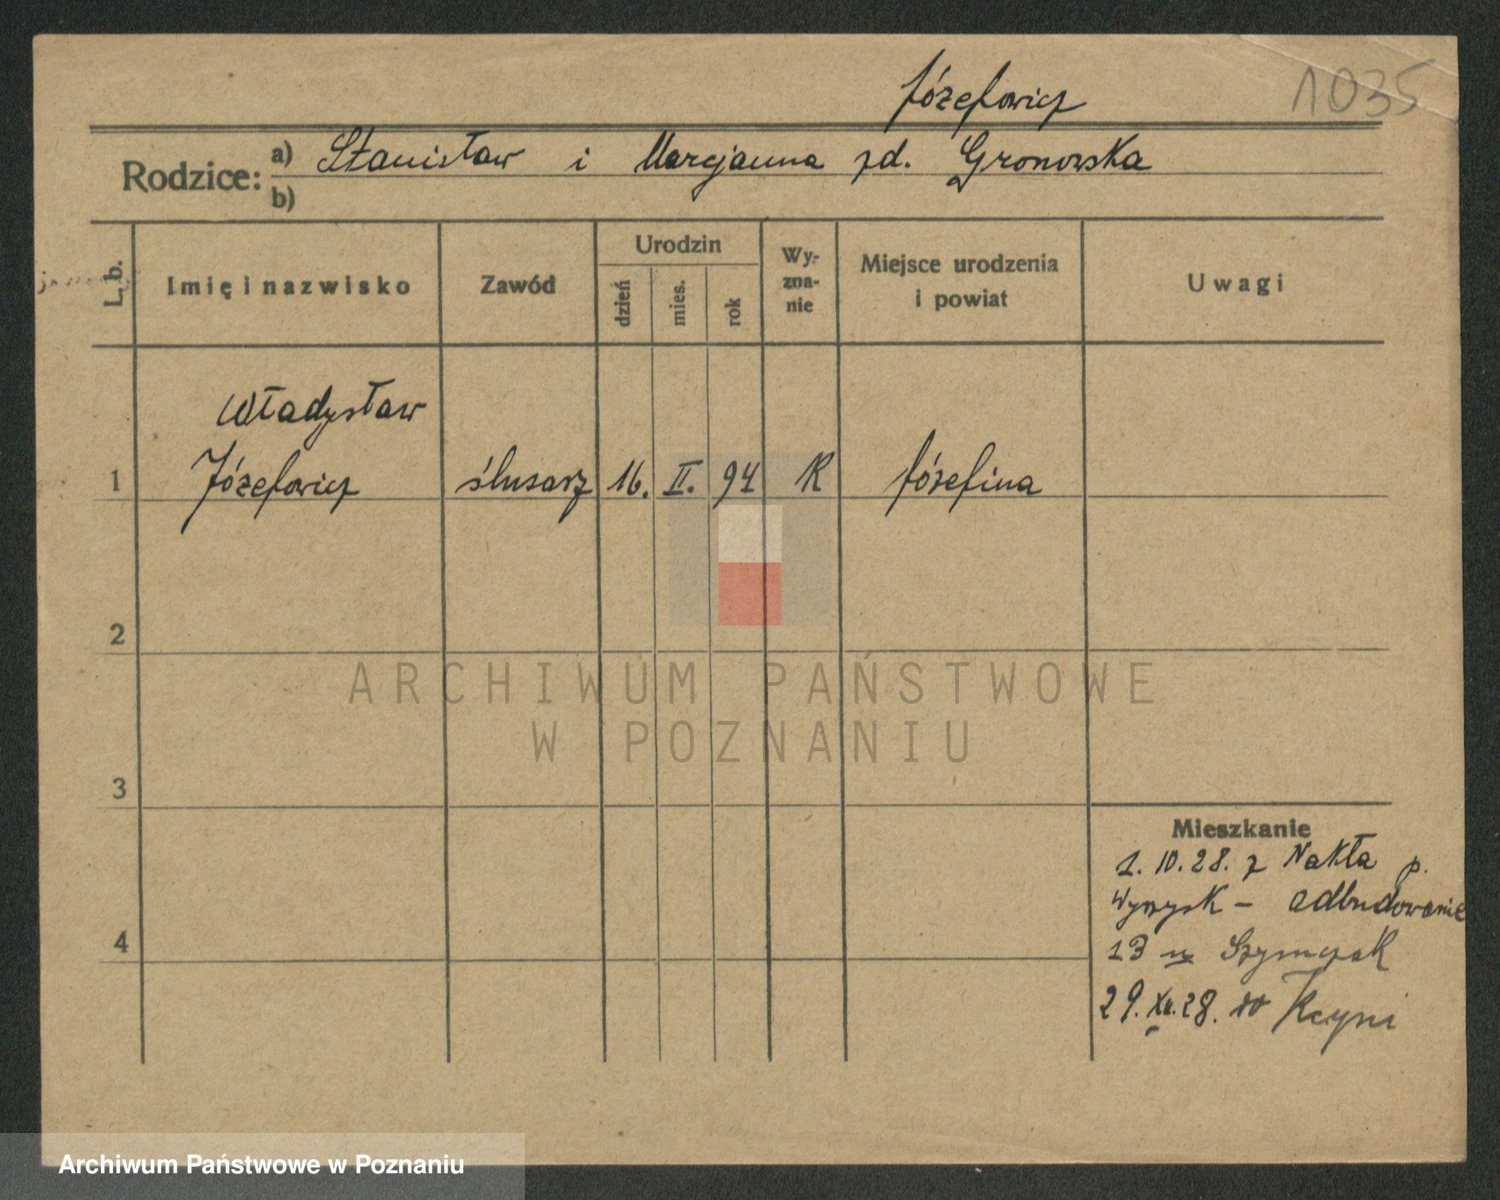 Józefowicz
1035
Rodzice: a) Stanisław i Marcjanna zd. Gronowska
b)
L. b.
Imię i nazwisko
Zawód
Urodzin
dzień
mies.
rok
Wy-
zna-
nie
Miejsce urodzenia
i powiat
Uwagi
Władysław
1 Józefowicz ślusarz 16. II. 94 K Józefina
2
3
4
Mieszkanie
1. 10. 28. z Nakła p.
Wyrzysk – Odbudowanie
13 u Szymczak
29. XII. 28. do Kcyni
ARCHIWUM PAŃSTWOWE
W POZNANIU
Archiwum Państwowe w Poznaniu